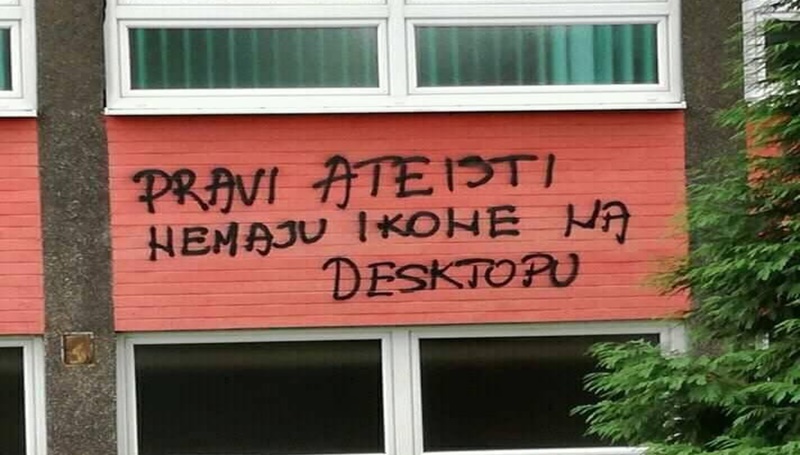 PRAVI ATEISTI
NEMAJU IKONE NA
DESKTOPU